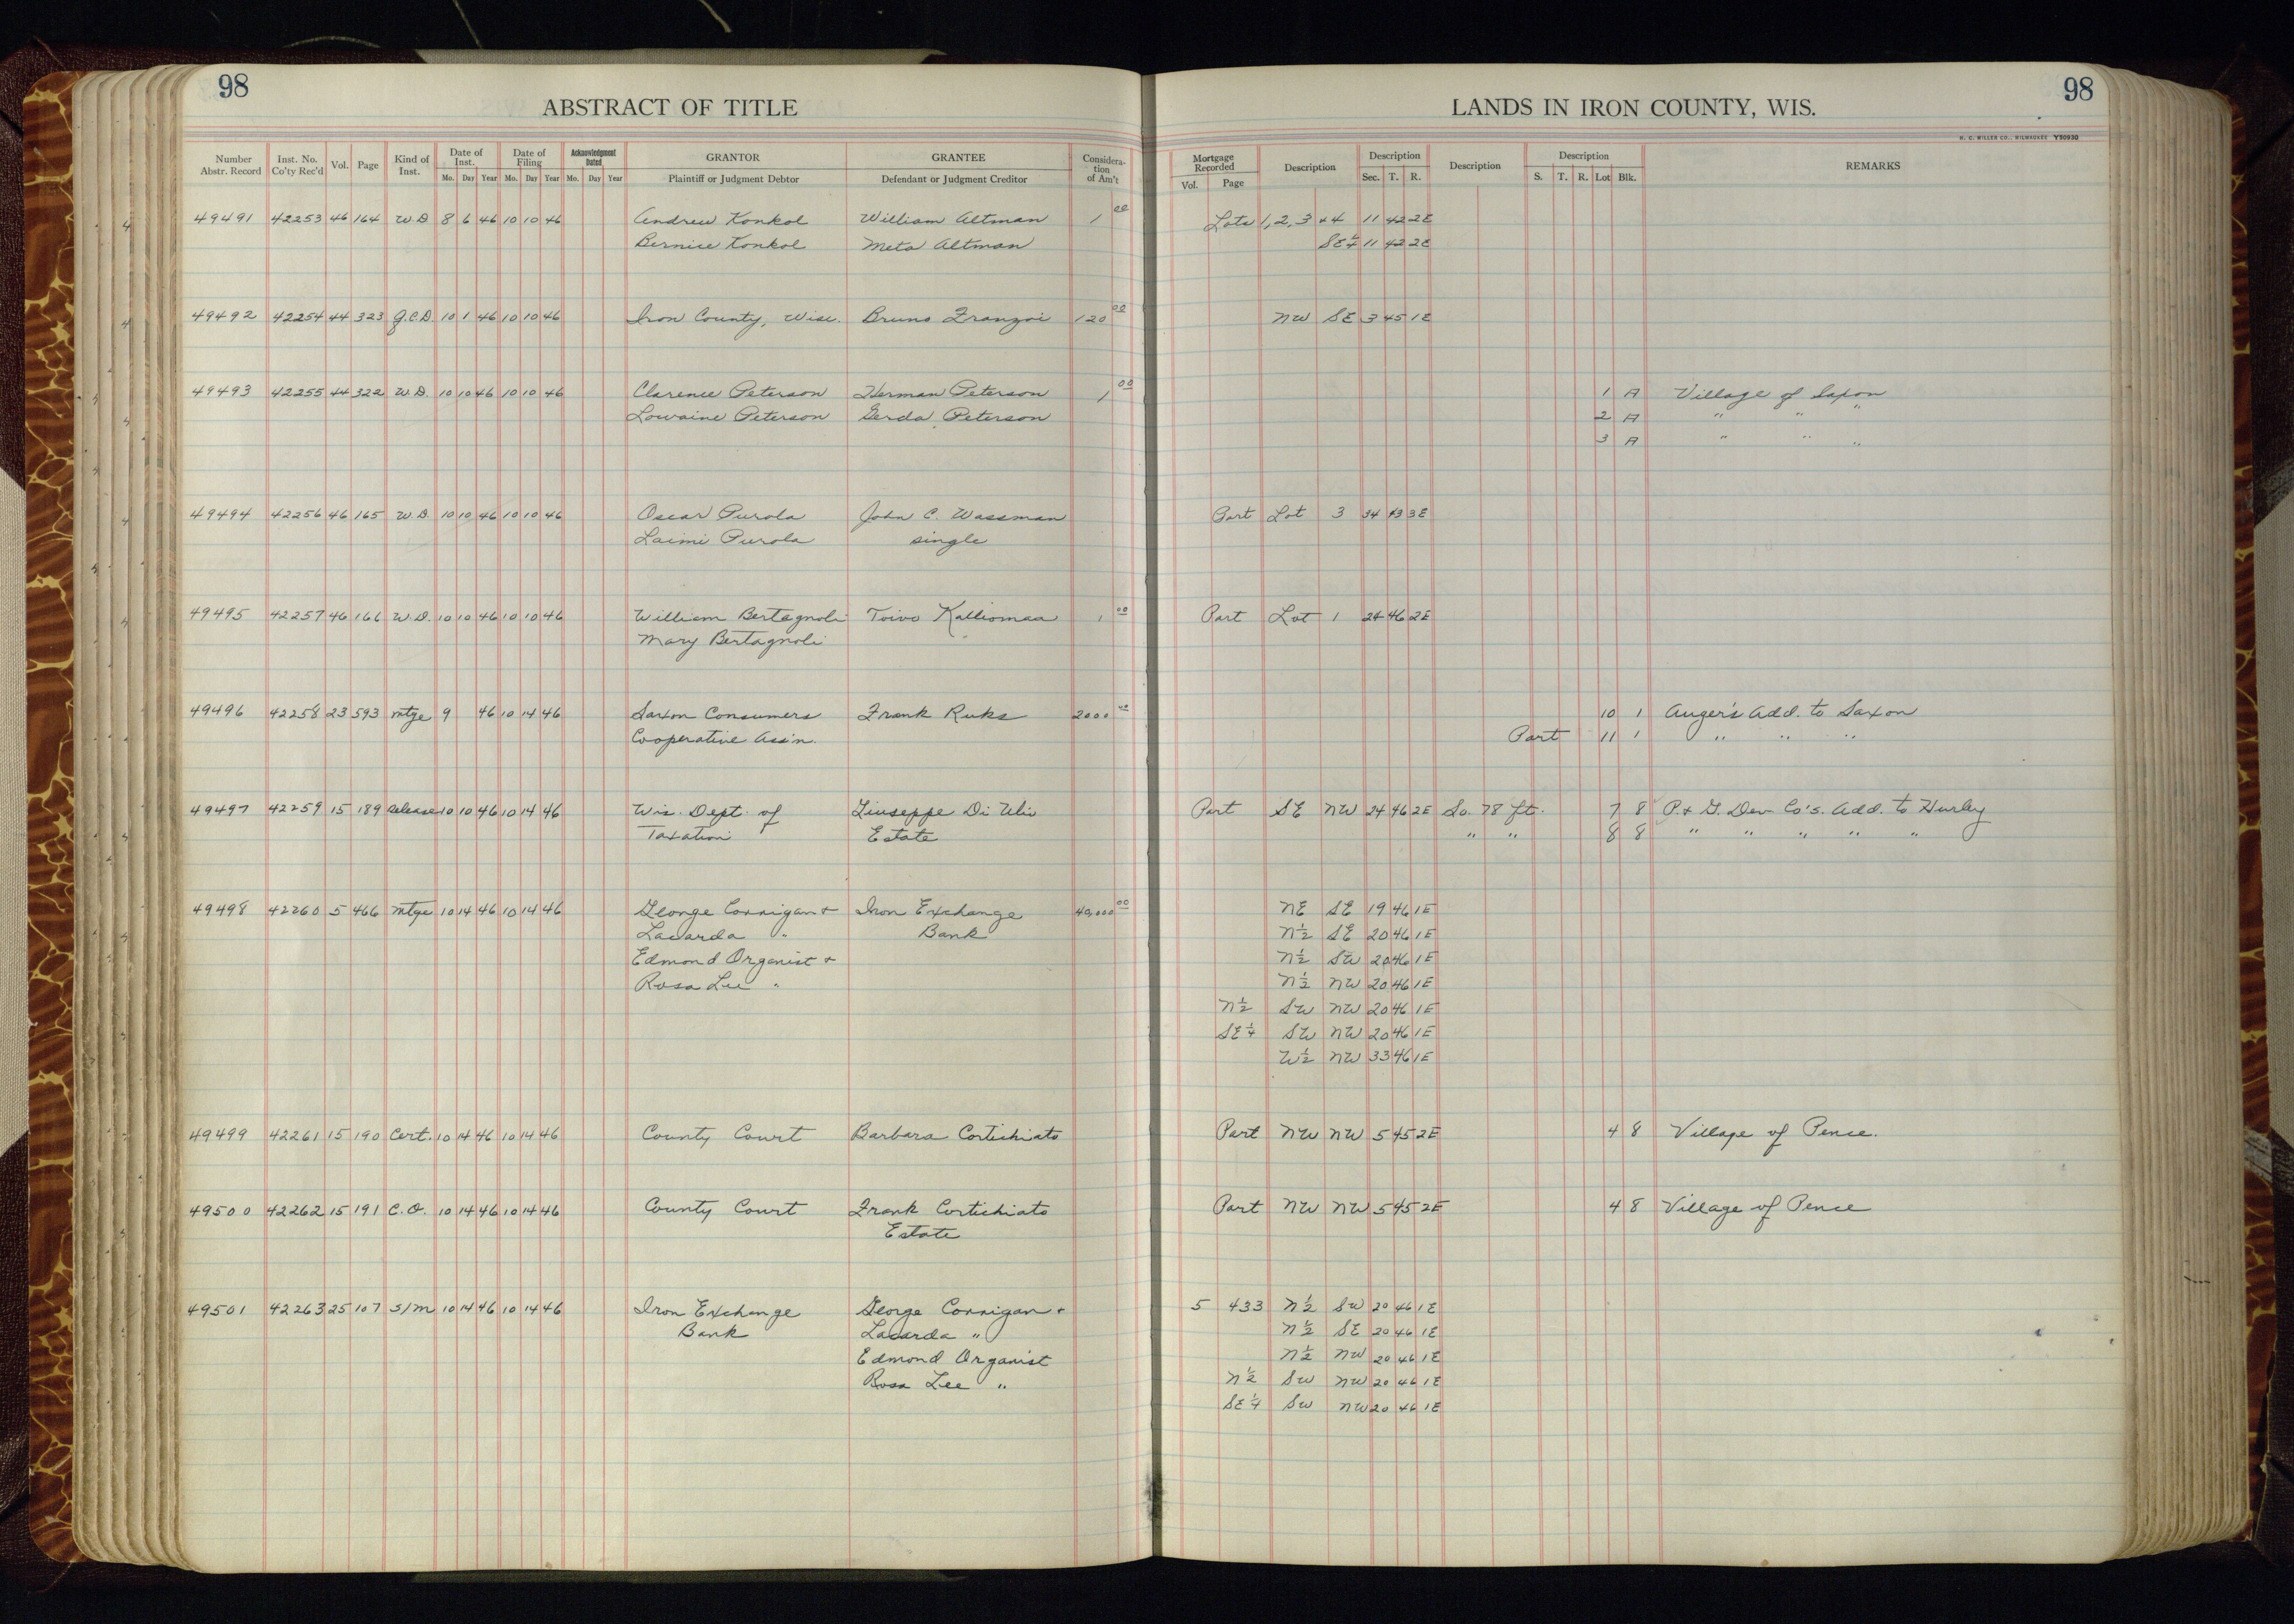 98
ABSTRACT OF TITLE
LANDS IN IRON COUNTY, WIS.
98
H. C. MILLER CO., MILWAUKEE Y50930
Number Abstr. Record Inst. No. Co'ty Rec'd Vol. Page Kind of Inst. Date of Inst. Mo. Day Year Date of Filing Mo. Day Year Acknowledgment Dated Mo. Day Year GRANTOR Plaintiff or Judgment Debtor GRANTEE Defendant or Judgment Creditor Consideration of Am't Mortgage Recorded Vol. Page Description Description Sec. T. R. Description Description S. T. R. Lot Blk. REMARKS
49491 42253 46 164 W.D 8 6 46 10 10 46 Andrew Konkol William Altman 1 00 Lots 1, 2, 3 + 4 11 42 2E
Bernice Konkol Meta Altman SE 1/4 11 42 2E
49492 42254 44 323 Q.C.D. 10 1 46 10 10 46 Iron County, Wisc. Bruno Franzoi 120 00 NW SE 3 45 1E
49493 42255 44 322 W.D. 10 10 46 10 10 46 Clarence Peterson Herman Peterson 1 00 1 A Village of Saxon
Lorraine Peterson Gerda Peterson 2 A " " "
3 A " " "
49494 42256 46 165 W.D. 10 10 46 10 10 46 Oscar Purola John C. Wassman Part Lot 3 34 43 3E
Laimi Purola single
49495 42257 46 166 W.D. 10 10 46 10 10 46 William Bertagnoli Toivo Kalliomaa 1 00 Part Lot 1 24 46 2E
Mary Bertagnoli
49496 42258 23 593 mtge 9 46 10 14 46 Saxon Consumers Frank Ruks 2000 00 10 1 Auger's Add. to Saxon
Cooperative Ass'n. Part 11 1 " " "
49497 42259 15 189 Release 10 10 46 10 14 46 Wis. Dept. of Giuseppe Di Ulio Part SE NW 24 46 2E So. 78 ft. 7 8 P. & G. Dev Co's. Add. to Hurley
Taxation Estate " " 8 8 " " " " "
49498 42260 5 466 mtge 10 14 46 10 14 46 George Corrigan + Iron Exchange 40,000 00 NE SE 19 46 1E
Lacarda " Bank N 1/2 SE 20 46 1E
Edmond Organist + N 1/2 SW 20 46 1E
Rosa Lee " N 1/2 NW 20 46 1E
N 1/2 SW NW 20 46 1E
SE 1/4 SW NW 20 46 1E
W 1/2 NW 33 46 1E
49499 42261 15 190 Cert. 10 14 46 10 14 46 County Court Barbara Cortichiato Part NW NW 5 45 2E 4 8 Village of Pence.
49500 42262 15 191 C.O. 10 14 46 10 14 46 County Court Frank Cortichiato Part NW NW 5 45 2E 4 8 Village of Pence
Estate
49501 42263 25 107 S/M 10 14 46 10 14 46 Iron Exchange George Corrigan + 5 433 N 1/2 SW 20 46 1E
Bank Lacarda " N 1/2 SE 20 46 1E
Edmond Organist N 1/2 NW 20 46 1E
Rosa Lee " N 1/2 SW NW 20 46 1E
SE 1/4 SW NW 20 46 1E